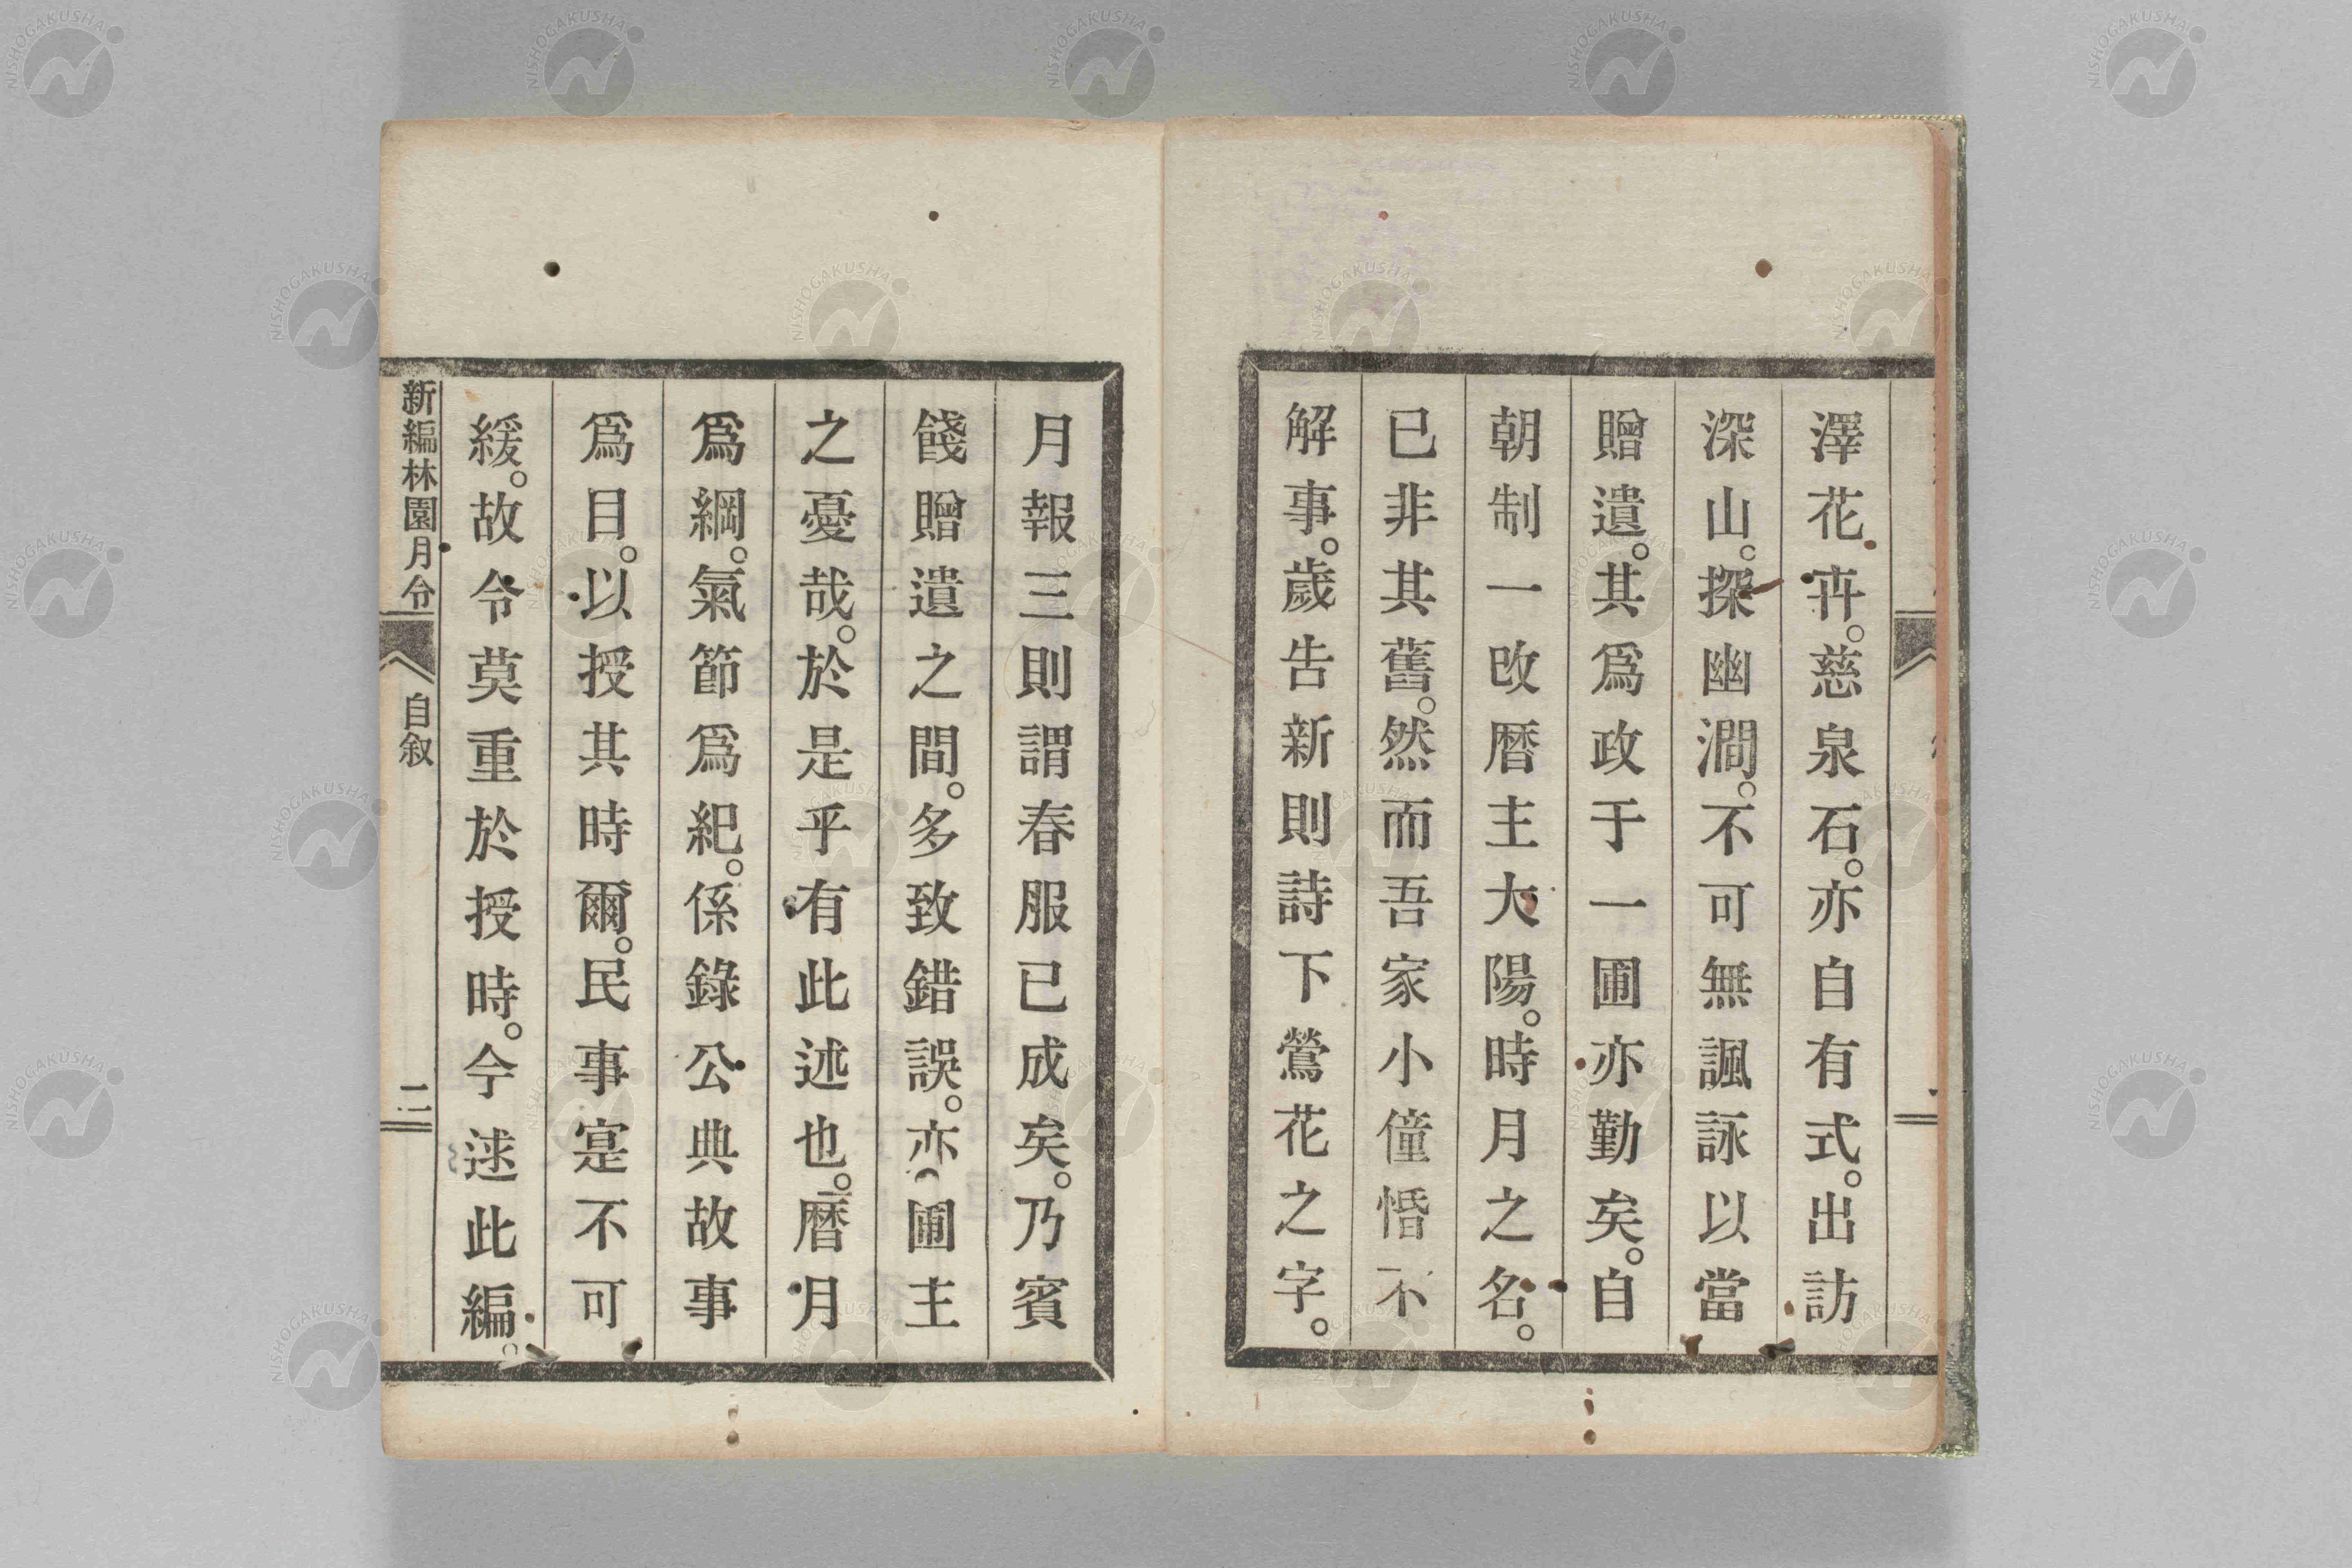 澤花卉。慈泉石。亦自有式。出訪
深山。探幽澗。不可無諷詠以當
贈遺。其爲政于一圃亦勤矣。自
朝制一改曆主大陽。時月之名。
已非其舊。然而吾家小僮惛不
解事。歲告新則詩下鶯花之字。
月報三則謂春服已成矣。乃賓
餞贈遺之間。多致錯誤。亦圃主
之憂哉。於是乎有此述也。曆月
爲綱。氣節爲紀。係錄公典故事
爲目。以授其時爾。民事寔不可
緩。故令莫重於授時。今逑此編。
新編林園月令
自叙
二
NISHOGAKUSHA